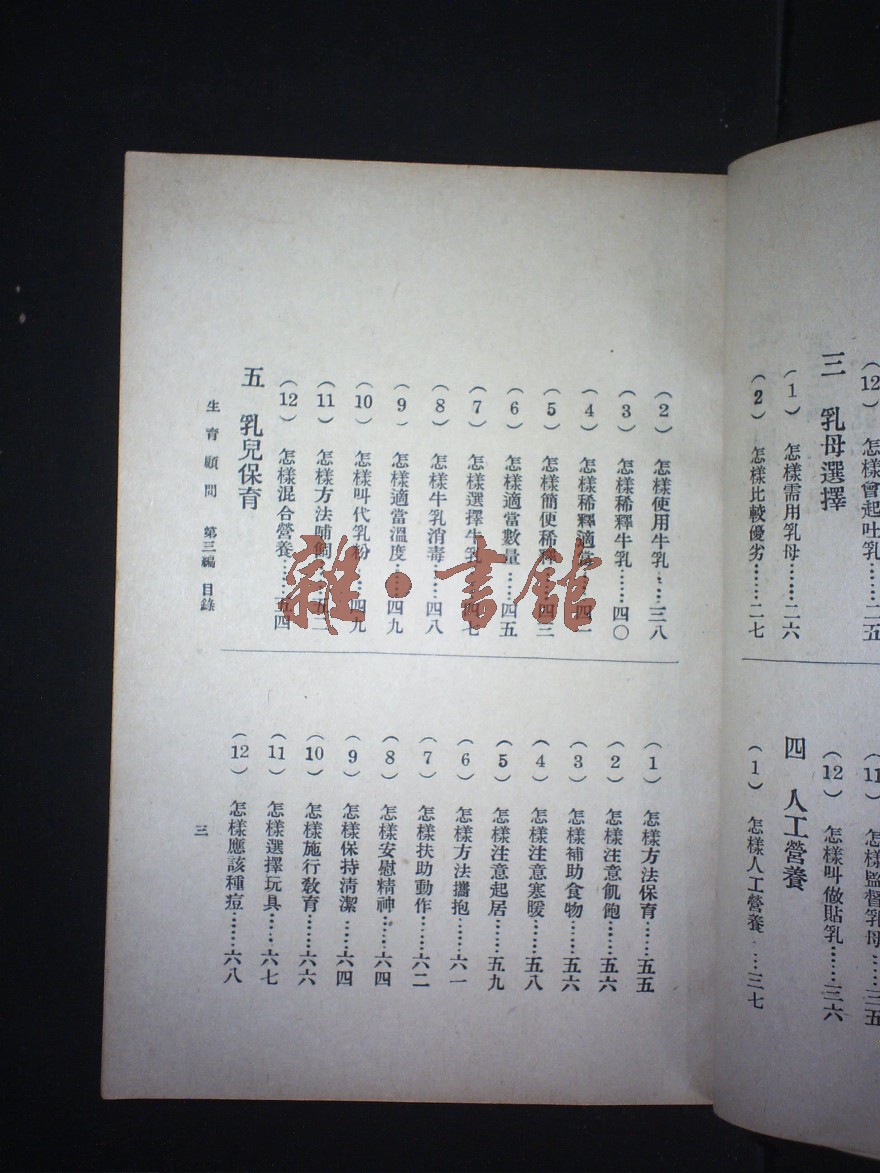 (12) 怎樣會起吐乳……二五
三 乳母選擇
(1) 怎樣需用乳母……二六
(2) 怎樣比較優劣……二七
(11) 怎樣監督乳母……三五
(12) 怎樣叫做貼乳……三六
四 人工營養
(1) 怎樣人工營養……三七
(2) 怎樣使用牛乳……三八
(3) 怎樣稀釋牛乳……四〇
(4) 怎樣稀釋適當……四一
(5) 怎樣簡便稀釋……四三
(6) 怎樣適當數量……四五
(7) 怎樣選擇牛乳……四七
(8) 怎樣牛乳消毒……四八
(9) 怎樣適當溫度……四九
(10) 怎樣叫代乳粉……四九
(11) 怎樣方法哺飼……五二
(12) 怎樣混合營養……五四
五 乳兒保育
(1) 怎樣方法保育……五五
(2) 怎樣注意飢飽……五六
(3) 怎樣補助食物……五六
(4) 怎樣注意寒暖……五八
(5) 怎樣注意起居……五九
(6) 怎樣方法攜抱……六一
(7) 怎樣扶助動作……六二
(8) 怎樣安慰精神……六四
(9) 怎樣保持清潔……六四
(10) 怎樣施行教育……六六
(11) 怎樣選擇玩具……六七
(12) 怎樣應該種痘……六八
生育顧問 第三編 目錄
三
雜·書館